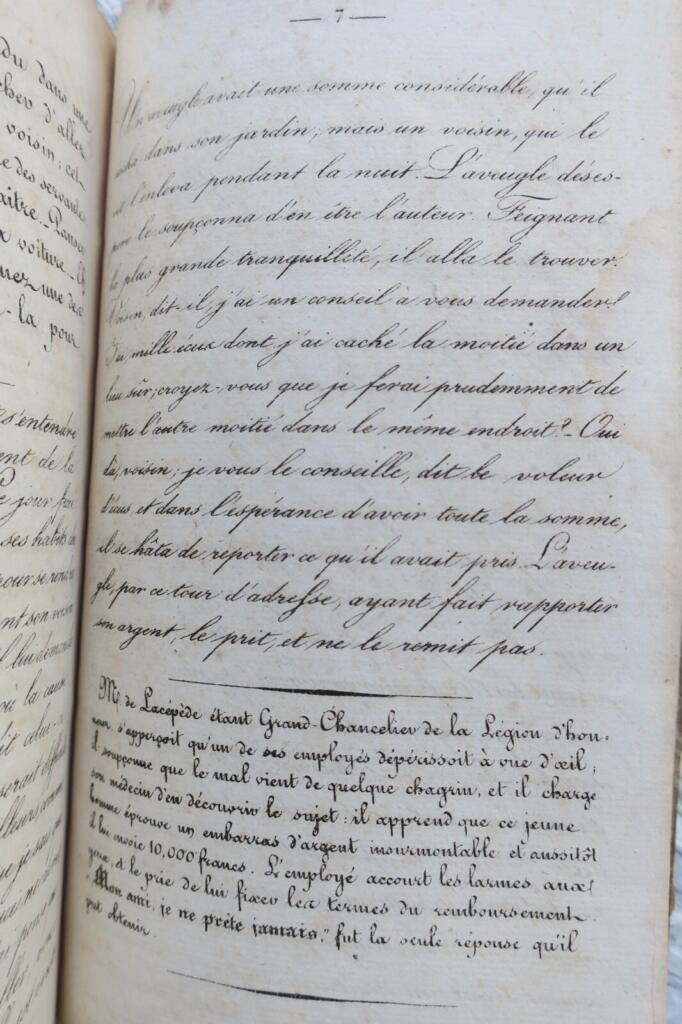 du dans une
cher d'aller
voisin; cel-
e des servantes
aitre. Ranson
x voiture.
nez une de
la pour
s'entendre
ent de la
e jour
ses habits
pour se rendre
nt son voisin
il lui demanda
où la cause
it celui-
serait difficile
ailleurs, comme
— 7 —
Un aveugle avait une somme considérable, qu'il
cacha dans son jardin; mais un voisin, qui le
vit l'enleva pendant la nuit. L'aveugle déses-
péré le soupçonna d'en être l'auteur. Feignant
la plus grande tranquilleté, il alla le trouver.
Voisin, dit-il, j'ai un conseil à vous demander!
J'ai mille écus dont j'ai caché la moitié dans un
lieu sûr; croyez-vous que je ferai prudemment de
mettre l'autre moitié dans le même endroit? - Oui
dà, voisin; je vous le conseille, dit le voleur
d'écus et dans l'espérance d'avoir toute la somme,
il se hâta de reporter ce qu'il avait pris. L'aveu-
gle, par ce tour d'adresse, ayant fait rapporter
son argent, le prit, et ne le remit pas.
Mr. de Lacépède étant Grand-Chancelier de la Légion d'hon-
neur s'apperçoit qu'un de ses employés dépérissoit à vue d'œil;
il soupçonne que le mal vient de quelque chagrin, et il charge
son médecin d'en découvrir le sujet: il apprend que ce jeune
homme éprouve un embarras d'argent insurmontable et aussitôt
il lui envoie 10,000 francs. L'employé accourt les larmes aux
yeux, et le prie de lui fixer les termes du remboursement.
"Mon ami, je ne prête jamais," fut la seule réponse qu'il
put obtenir.